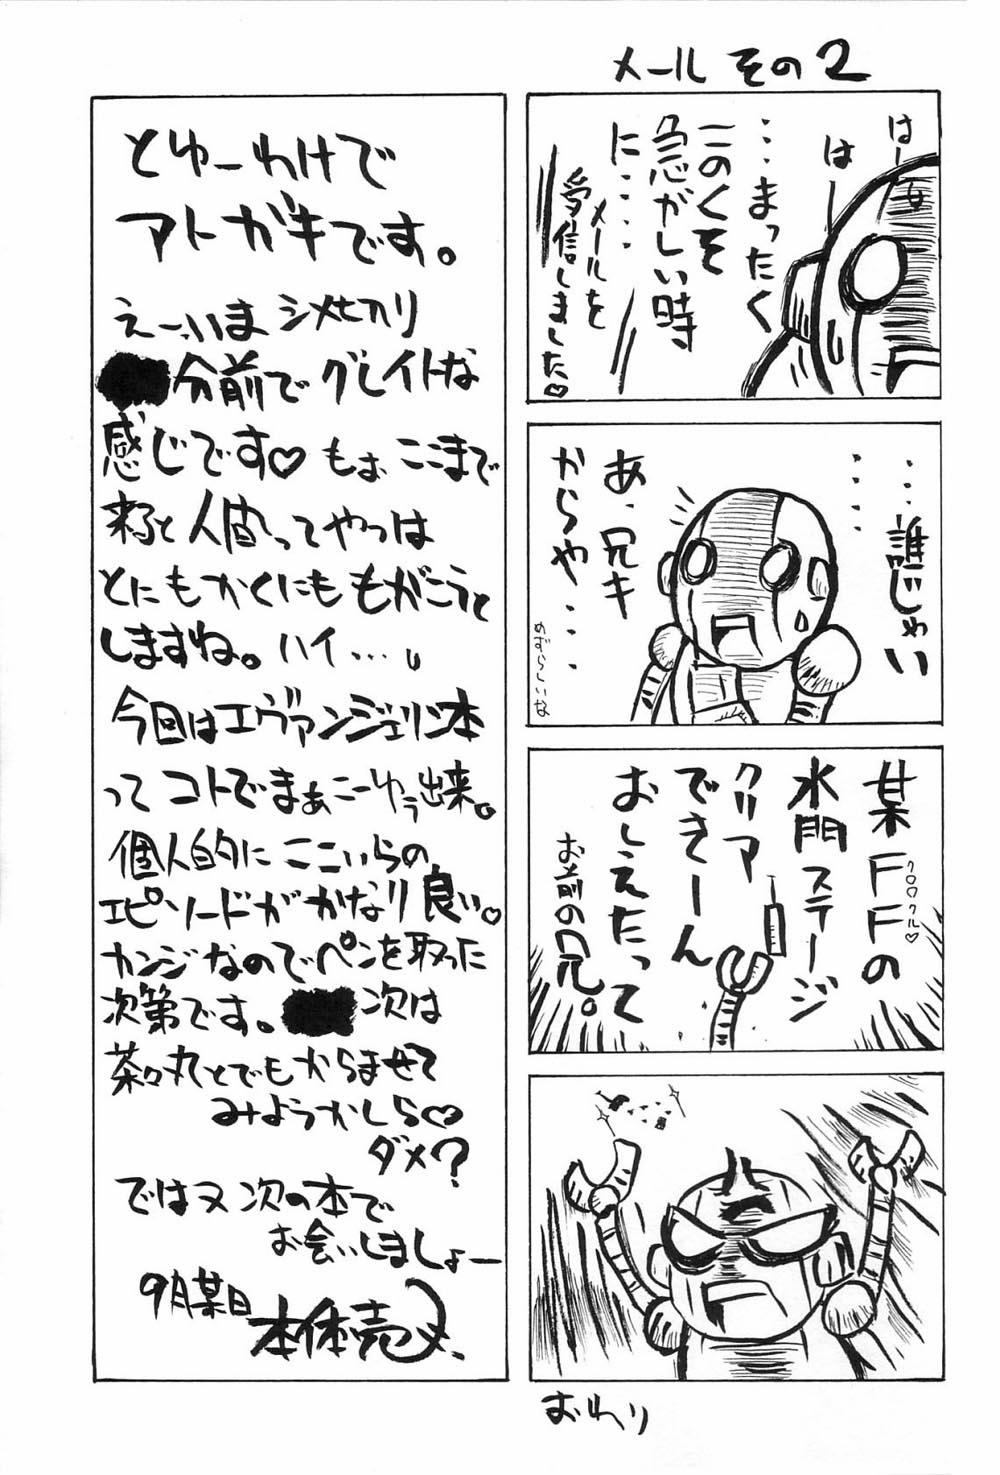 メール その2
はー
はー
…まったく
このくそ
急がしい時
に・・・・
メールを
受信しました♡
・・・・
…誰じゃい
あ、兄キ
からや・・・
めずらしいな
某FFの
クロクル♡
水門ステージ
クリア
できーん
おしえたって
お前の兄。
おわり
とゆーわけで
アトガキです。
えーいま シメセカリ
分前で グレイトな
感じです♡ もぉ ここまで
来ると 人間ってやつは
とにもかくにも もがこうと
しますね。ハイ…。
今回はエヴァンジェリン本
って コトでまぁこーゆう出来。
個人的に ここいらの
エピソードが かなり良い。
カンジなのでペンを取った
次第です。 次は
茶々丸とでもからませて
みようかしら♡
ダメ?
ではヌ 次の本で
お会いしましょー
9月某日
本体売ヌ